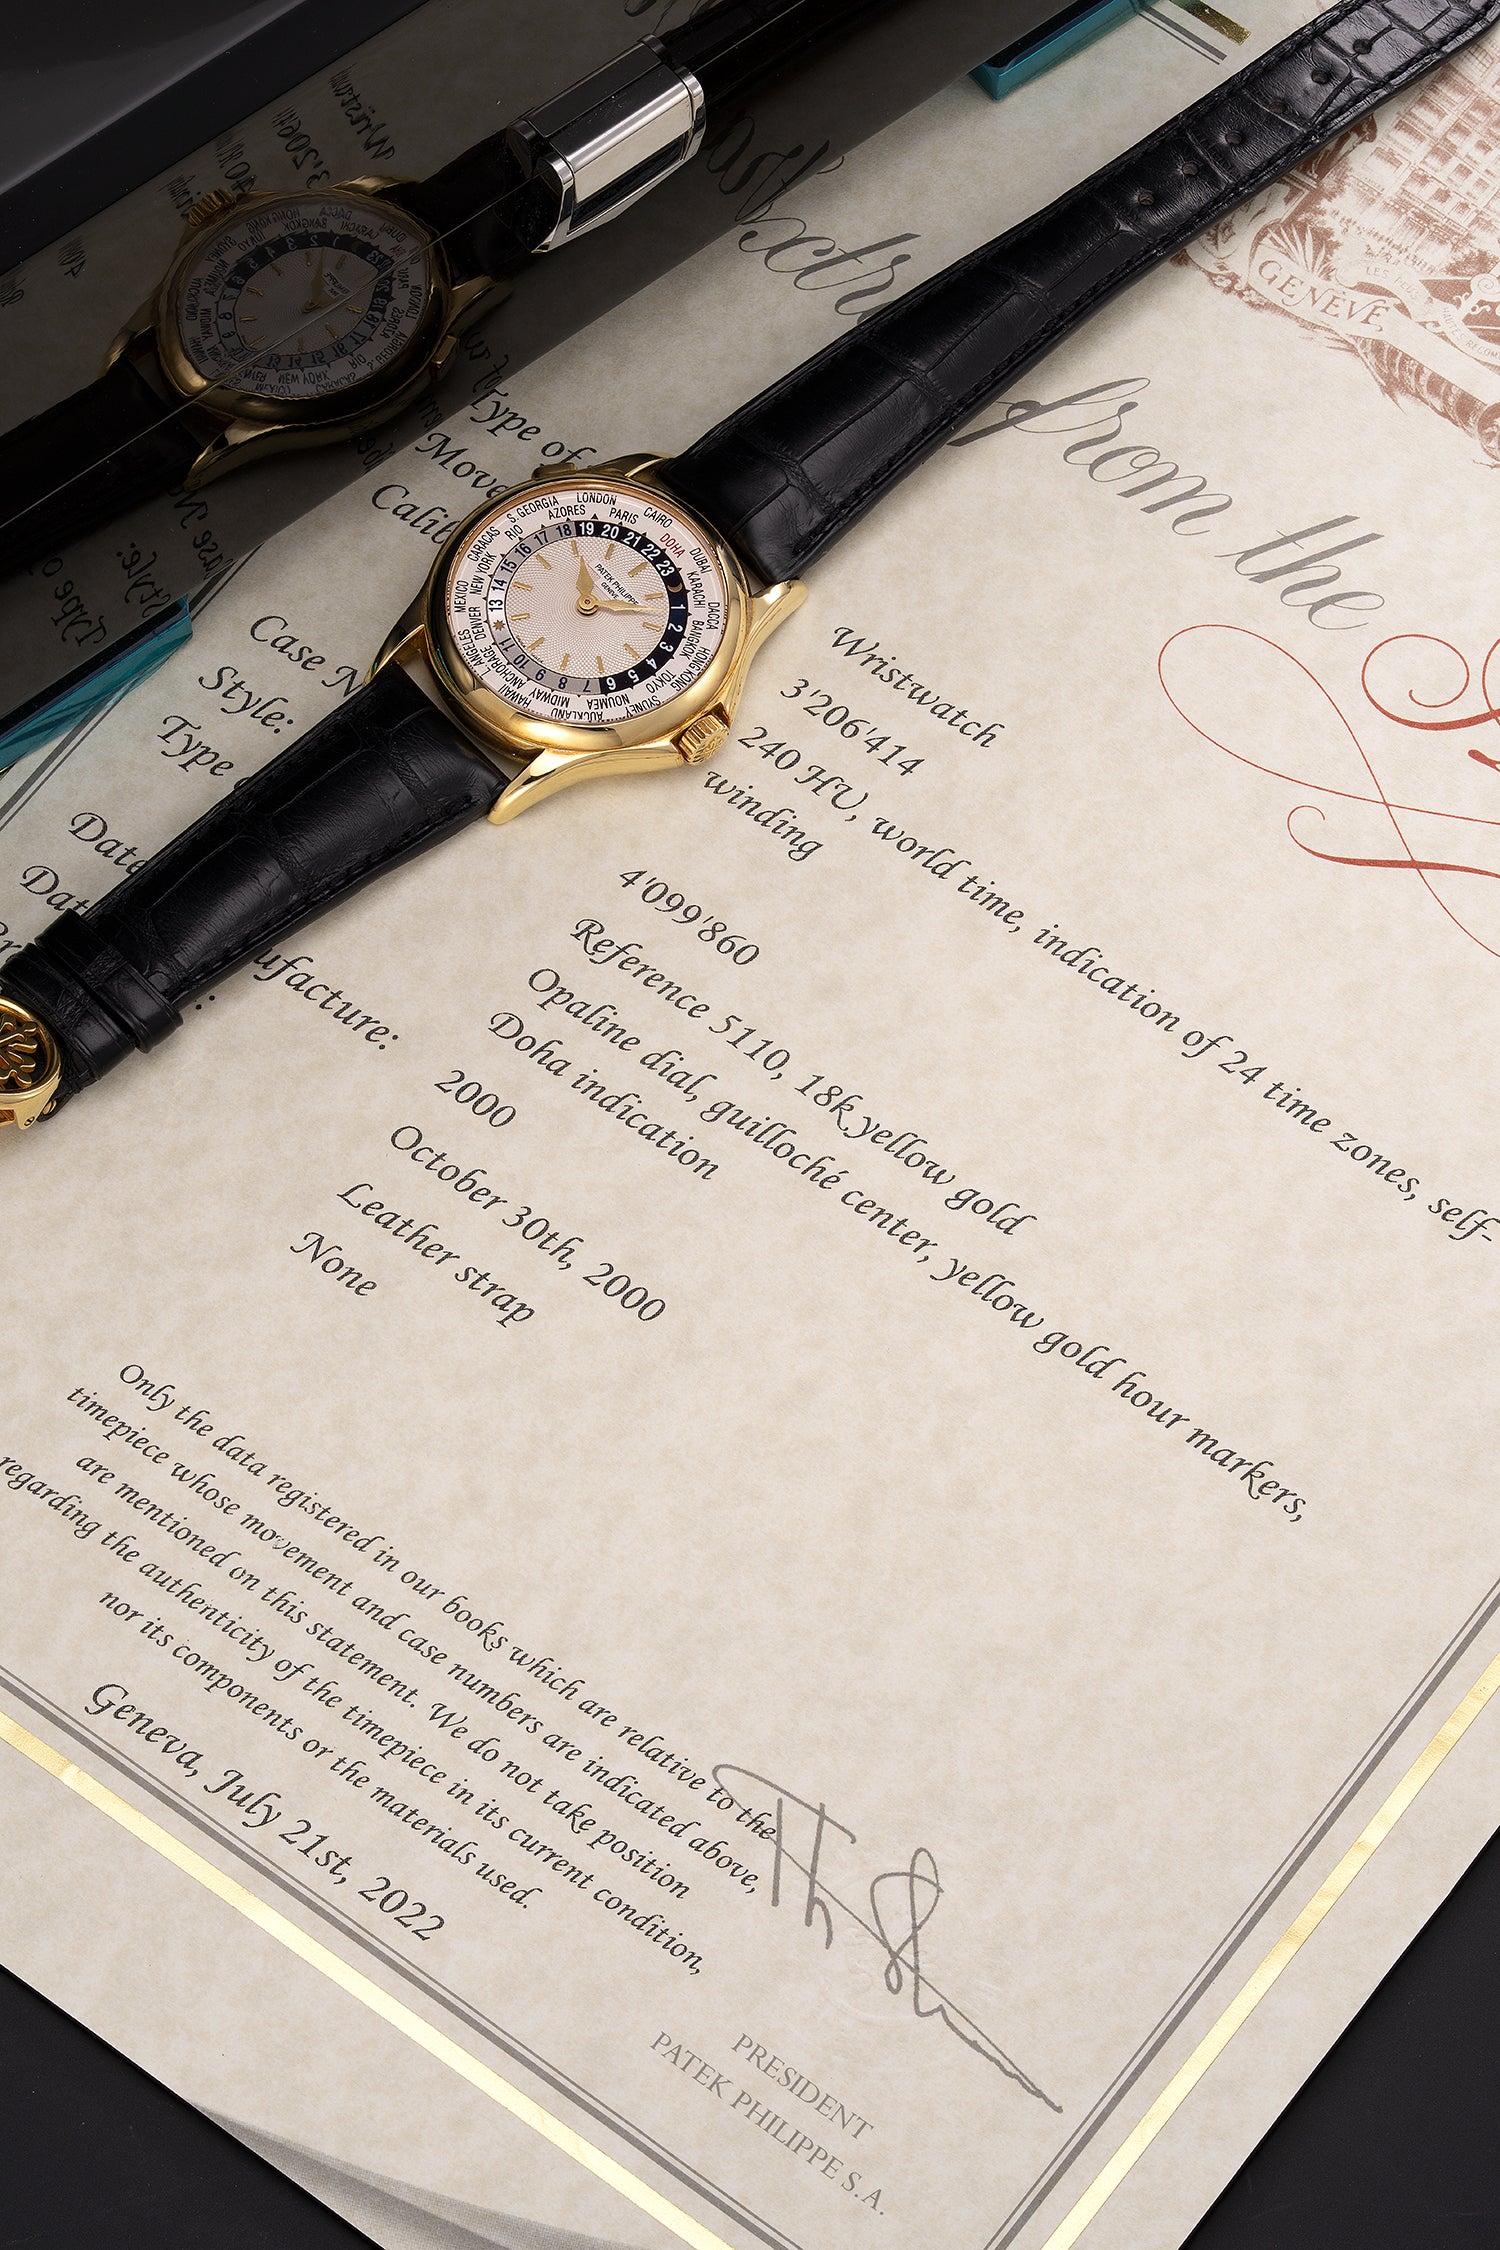 Extra
from the
GENÈVE
Type of
Move
Calib
Case N
Style:
Type
Date
Dat
ufacture:
Wristwatch
3'206'414
240 HU, world time, indication of 24 time zones, self-
winding
4'099'860
Reference 5110, 18k yellow gold
Opaline dial, guilloché center, yellow gold hour markers,
Doha indication
2000
October 30th, 2000
Leather strap
None
Only the data registered in our books which are relative to the
timepiece whose movement and case numbers are indicated above,
are mentioned on this statement. We do not take position
regarding the authenticity of the timepiece in its current condition,
nor its components or the materials used.
Geneva, July 21st, 2022
PRESIDENT
PATEK PHILIPPE S.A.
LONDON
PARIS
CAIRO
DOHA
DUBAI
KARACHI
DACCA
BANGKOK
HONG KONG
TOKYO
SYDNEY
NOUMEA
AUCKLAND
MIDWAY
HAWAII
ANCHORAGE
L.ANGELES
DENVER
MEXICO
NEW YORK
CARACAS
RIO
S.GEORGIA
AZORES
19 20 21 22 23 1 2 3 4 5 6 7 8 9 10 11 13 14 15 16 17 18
PATEK PHILIPPE
GENEVE